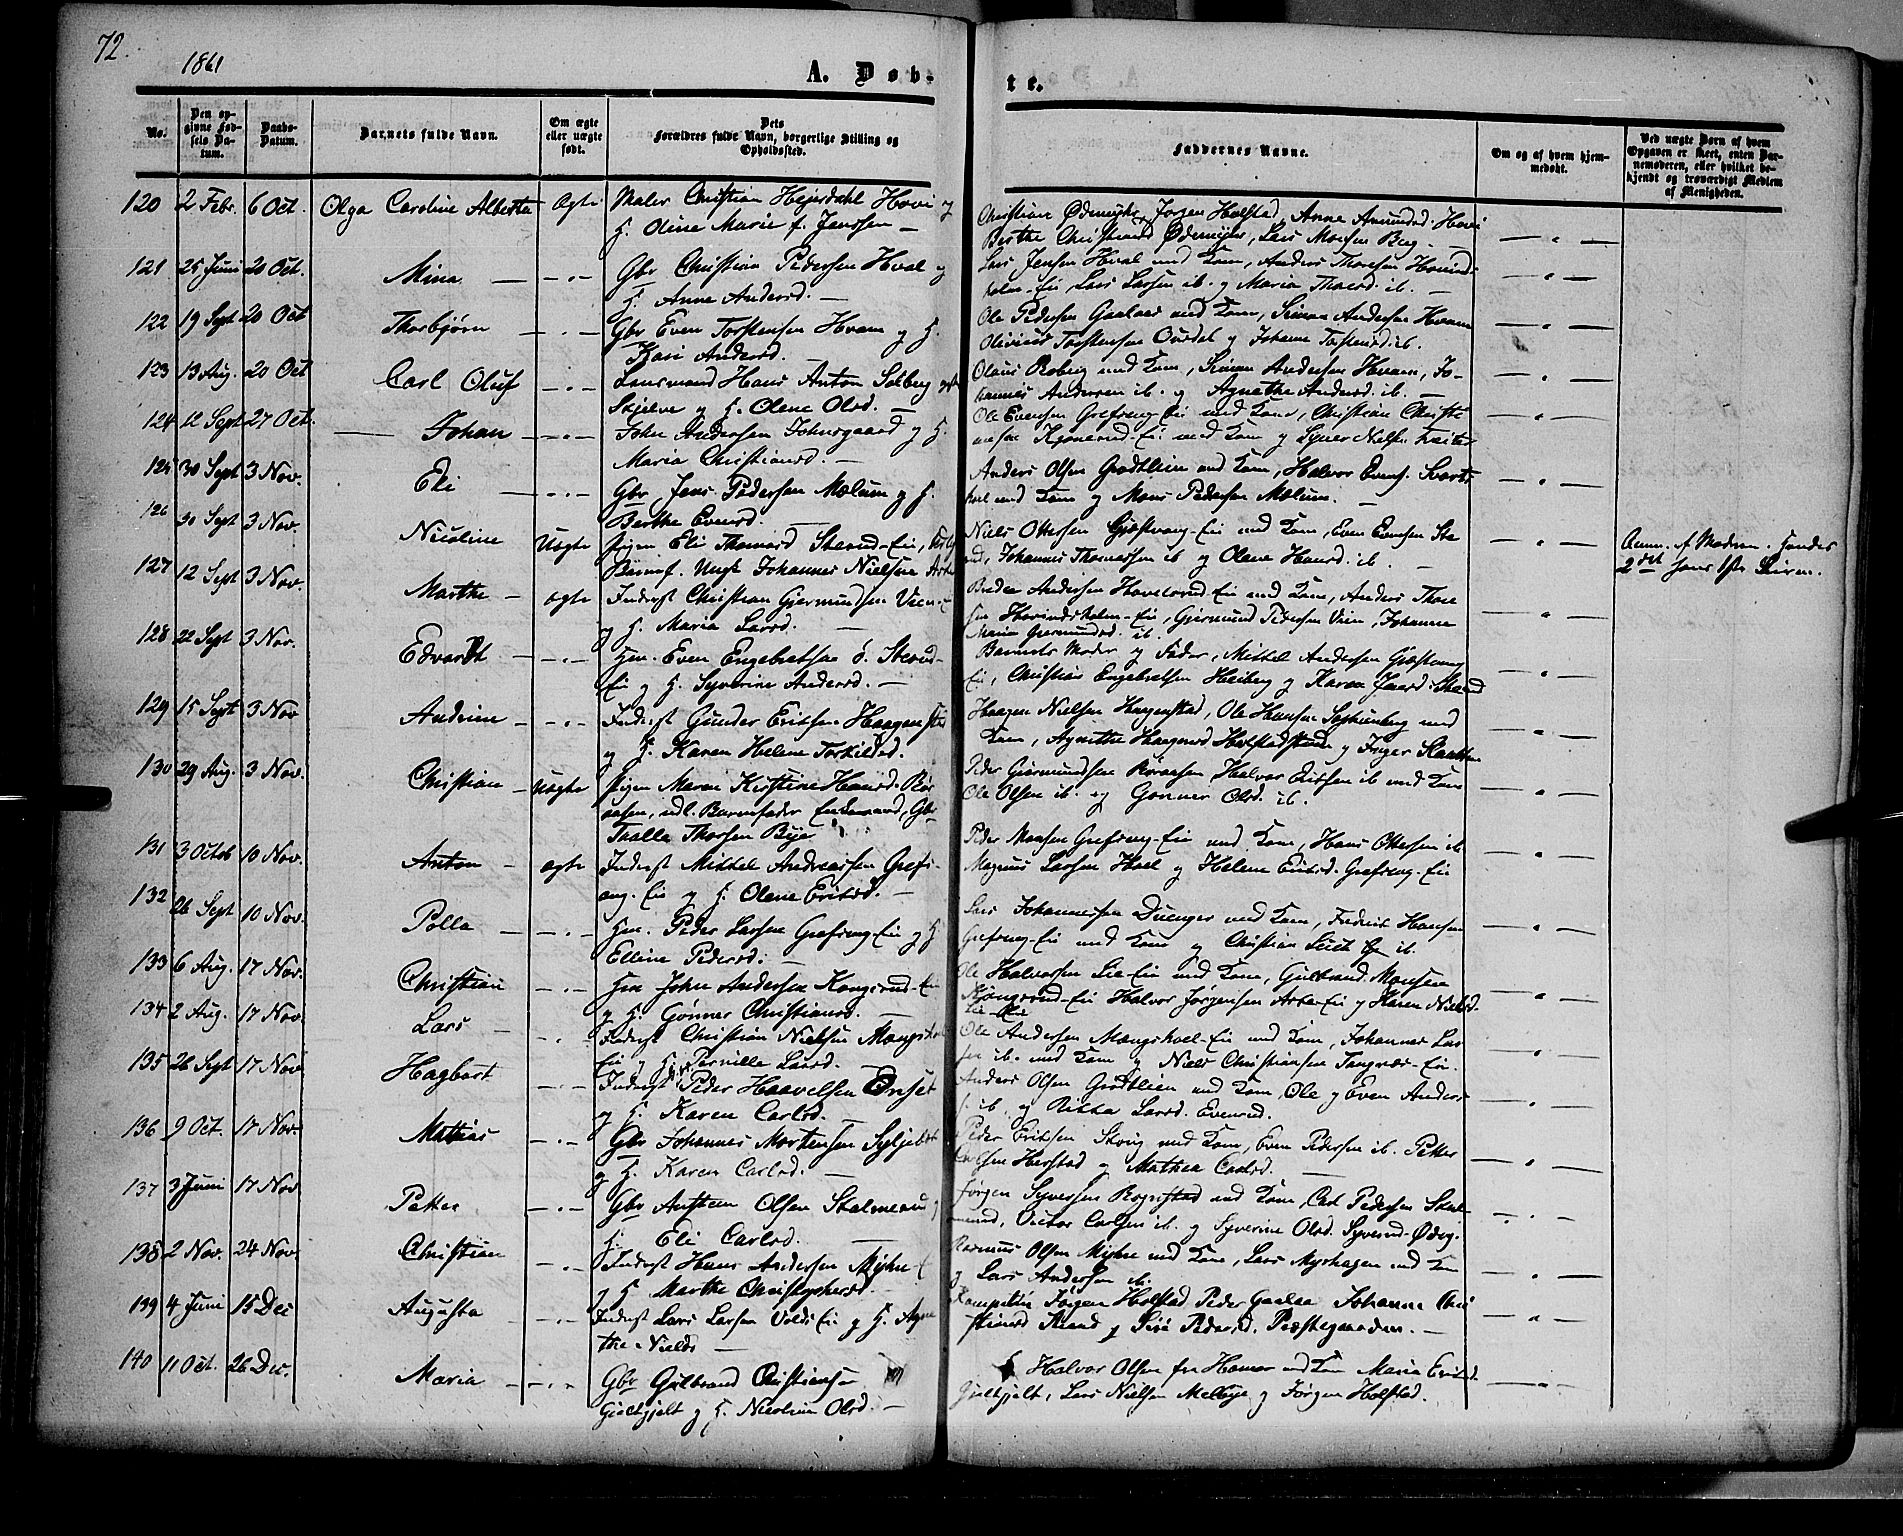 72.
1861
A. Døb-
te.
No.
Den op-
givne Fød-
sels Da-
tum.
Daabs-
Datum.
Barnets fulde Navn.
Om ægte
eller uægte
født.
Dets
Forældres fulde Navn, borgerlige Stilling og
Opholdssted.
Faddernes Navne.
Om og af hvem hjem-
medøbt.
Ved uægte Børn af hvem
Opgaven er skeet, enten Bar-
nemoderen, eller hvilket be-
kjendt og troværdigt Medlem
af Menigheden.
120 2 Febr. 6 Oct. Olga Caroline Alberta Ægte Maler Christian Hejerdahl Hovi og
H. Oline Marie f. Janssen —
Christian Ødemyhr, Jørgen Halstad, Anne Amundsd. Hovi
Berthe Christiansd Ødemyhr, Lars Monsen Berg. —
121 25 Juni 20 Oct. Mina — " — Gbr Christian Pedersen Hval og
H. Anne Andersd. —
Lars Jensen Hval med Kone, Anders Thoresen Hovind-
holm-Eie, Lars Larsen ib. og Maria Thoresd. ib. —
122 19 Sept 20 Oct Thorbjørn — " — Gbr Even Torstensen Hvam og H.
Kari Andersd. —
Ole Pedersen Gaalaas med Kone, Simen Andersen Hvam
Olivius Torstensen Ourdal og Johanne Torstensd. ib.
123 19 Aug. 20 Oct Carl Oluf — " — Lensmand Hans Anton Solberg
Skjelve og H. Olene Olsd. —
Olaus Roberg med Kone, Simen Andersen Hvam, Jo-
hannes Andersen ib. og Agnethe Andersd. ib. —
124 12 Sept 27 Oct. Johan — " — John Andersen Johnsgaard og H.
Maria Christiansd. —
Ole Evensen Grefseng-Eie med Kone, Christian Christi-
ansen Kjonerud-Eie med Kone og Syver Nielsen
125 30 Sept 3 Nov. Eli — " — Gbr Jens Pedersen Mælum og H.
Berthe Evensd. —
Anders Olsen Grodtlien med Kone, Halvor Evens. Svart-
hoel med Kone og Mons Pedersen Mælum. —
126 30 Sept 3 Nov. Nicoline Uægte Pigen Eli Thomasd Steend-Eie,
Barnef. Ungk Johannes Nielsen
Niels Ottersen Gjæstvang-Eie med Kone, Even Evensen
Johannes Thomassen ib og Olene Hansd. ib. —
Anm. af Modren. Hendes
2det hans 1ste Leierm.
127 12 Sept 3 Nov. Marthe — ægte Inderst Christian Gjermundsen Vien-E
og H. Maria Larsd. —
Andersen Hovelsrud-Eie med Kone, Anders Thore
sen Hovindsholm-Eie, Gjermund Pedersen Vien, Johanne
Maria Gjermundsd. ib.
128 22 Sept 3 Nov. Edvardt — " — Hm. Even Engebretsen ø. Steend-
Eie og H. Syverine Andersd. —
Barnets Moder og Fader, Mikkel Andersen Gjæstvang
Eie, Christian Engebretsen Heiberg og Karen
129 15 Sept 3 Nov Andrine — " — Inderst Gunder Eriksen Haagenstad
og H. Karen Helene Torkildsd.
Haagen Nielsen Haagenstad, Ole Hansen med
Kone, Agnethe Haagensd Halstad og Inger
130 29 Aug. 3 Nov. Christian — Uægte Pigen Maren Kirstine Hansd. Rør-
aasen, udl. Barnefader Enkemand, Gbr
Tralle Thorsen Bye
Peder Gjermundsen Røraasen Halvor Eriksen ib med Kone
Ole Olsen ib. og Gønner Olsd. ib.
131 3 Octob 10 Nov. Anton — ægte Inderst Mikkel Andreassen Grefs-
eng-Eie og H. Olene Eriksd. —
Peder Monsen Grefseng-Eie med Kone, Hans Ottersen ib
Magnus Larsen Hoel og Helene Eriksd. Grefseng-Eie
132 26 Sept 10 Nov. Polla — " — Hm. Peder Larsen Grefseng-Eie og H
Elline Pedersd. —
Lars Johannessen Duenger med Kone, Fredrik Hansen
Grefseng-Eie med Kone og Christian ib.
133 6 Aug. 17 Nov. Christian — " — Hm John Andersen Kongsrud-Eie
og H. Gønner Christiansd. —
Ole Halvorsen Lie-Eie med Kone, Gulbrand Monsen
Kjongsrud-Eie Halvor Jørgensen Arba-Eie og Karen Nielsd.
Lie-Eie
134 2 Aug. 17 Nov. Lars — " — Inderst Christian Nielsen Mængshoel
Eie og H. Pernille Larsd. —
Ole Andersen Mængshoel-Eie med Kone, Johannes Lar
sen ib. med Kone og Niels Christiansen Tangnæs-Eie.
135 26 Sept 17 Nov Hagbart — " — Inderst Peder Haavelsen Onset
og H. Karen Carlsd. —
Anders Olsen Grodtlien med Kone, Ole og Even Anders
s. ib. og Rikka Larsd. Evenrud.
136 9 Oct. 17 Nov. Mathias — " — Gbr Johannes Mortensen Syljebek
og H. Karen Carlsd. —
Peder Eriksen Skrig med Kone, Even Pedersen ib. Petter
Carlsen Herstad og Mathea Carlsd. —
137 3 Juni 17 Nov Petter — " — Gbr Austeen Olsen Stalmerud og
H. Eli Carlsd. —
Jørgen Syversen Rognstad med Kone, Carl Pedersen Stal-
merud, Victor Carlsen ib. og Syverine Olsd. Syverud-Ødeg.
138 2 Nov. 24 Nov. Christian — " — Inderst Hans Andersen Myhr-E
og H. Marthe Christophersd. —
Rasmus Olsen Myhre med Kone, Lars Myrhagen med Kone
og Lars Andersen ib.
139 4 Juni 15 Dec Augusta — " — Inderst Lars Larsen Volds Eie og H. Agne
the Nielsd. —
Kompetin Jørgen Halstad Peder Gaalaa Johanne Chri
stiansd og Siri Pedersd. Præstegaarden. —
140 11 Oct. 26 Dec. Maria — " — Gbr Gulbrand Christiansen
Gjethjelt og H. Nicoline Olsd. —
Halvor Olsen fra Hamar med Kone Maria Eriksd.
Gjethjelt, Lars Nielsen Melbye og Jørgen Halstad.